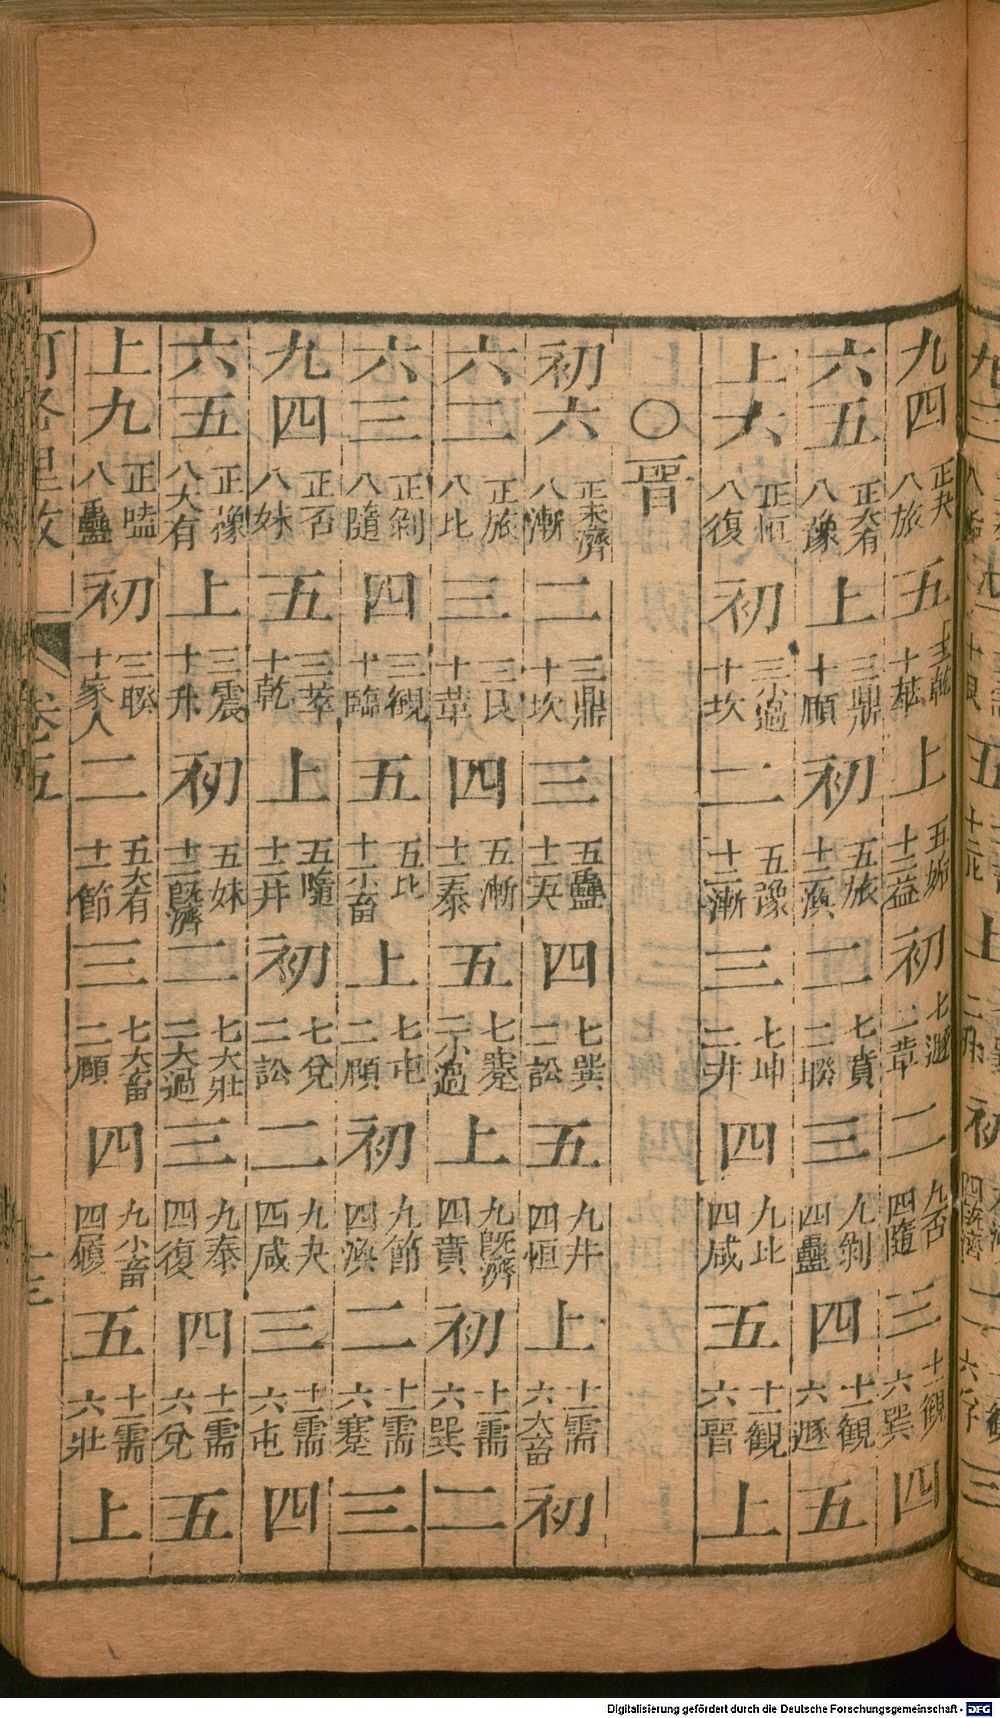 九四 正夬 八旅 五 十 上 五姤 十二益 初 七遯 二萃 二 九否 四隨 三 十一觀 六巽 四
六五 正大有 八豫 上 三鼎 十頤 初 五旅 十二渙 二 七賁 二睽 三 九剝 四蠱 四 十一觀 六遯 五
上六 正恒 八復 初 三小過 十坎 二 五豫 十二漸 三 七坤 二井 四 九比 四咸 五 十一觀 六晉 上
○晉
初六 正未濟 八漸 二 三鼎 十坎 三 五蠱 十二 四 七巽 二訟 五 九井 四恒 上 十一需 六大畜 初
六二 正旅 八比 三 三艮 十萃 四 五漸 十二泰 五 七蹇 二小過 上 九旣濟 四賁 初 十一需 六巽 二
六三 正剝 八隨 四 三觀 十臨 五 五比 十二小畜 上 七屯 二頤 初 九節 四渙 二 十一需 六蹇 三
九四 正否 八妹 五 三萃 十乾 上 五隨 十二井 初 七兌 二訟 二 九夬 四咸 三 十一需 六屯 四
六五 正豫 八大有 上 三震 十升 初 五妹 十二旣濟 二 七大壯 二大過 三 九泰 四復 四 十一需 六兌 五
上九 正嗑 八蠱 初 三睽 十家人 二 五大有 十二節 三 七大畜 二頤 四 九小畜 四履 五 十一需 六壯 上
卷五
十三
Digitalisierung gefördert durch die Deutsche Forschungsgemeinschaft - DFG